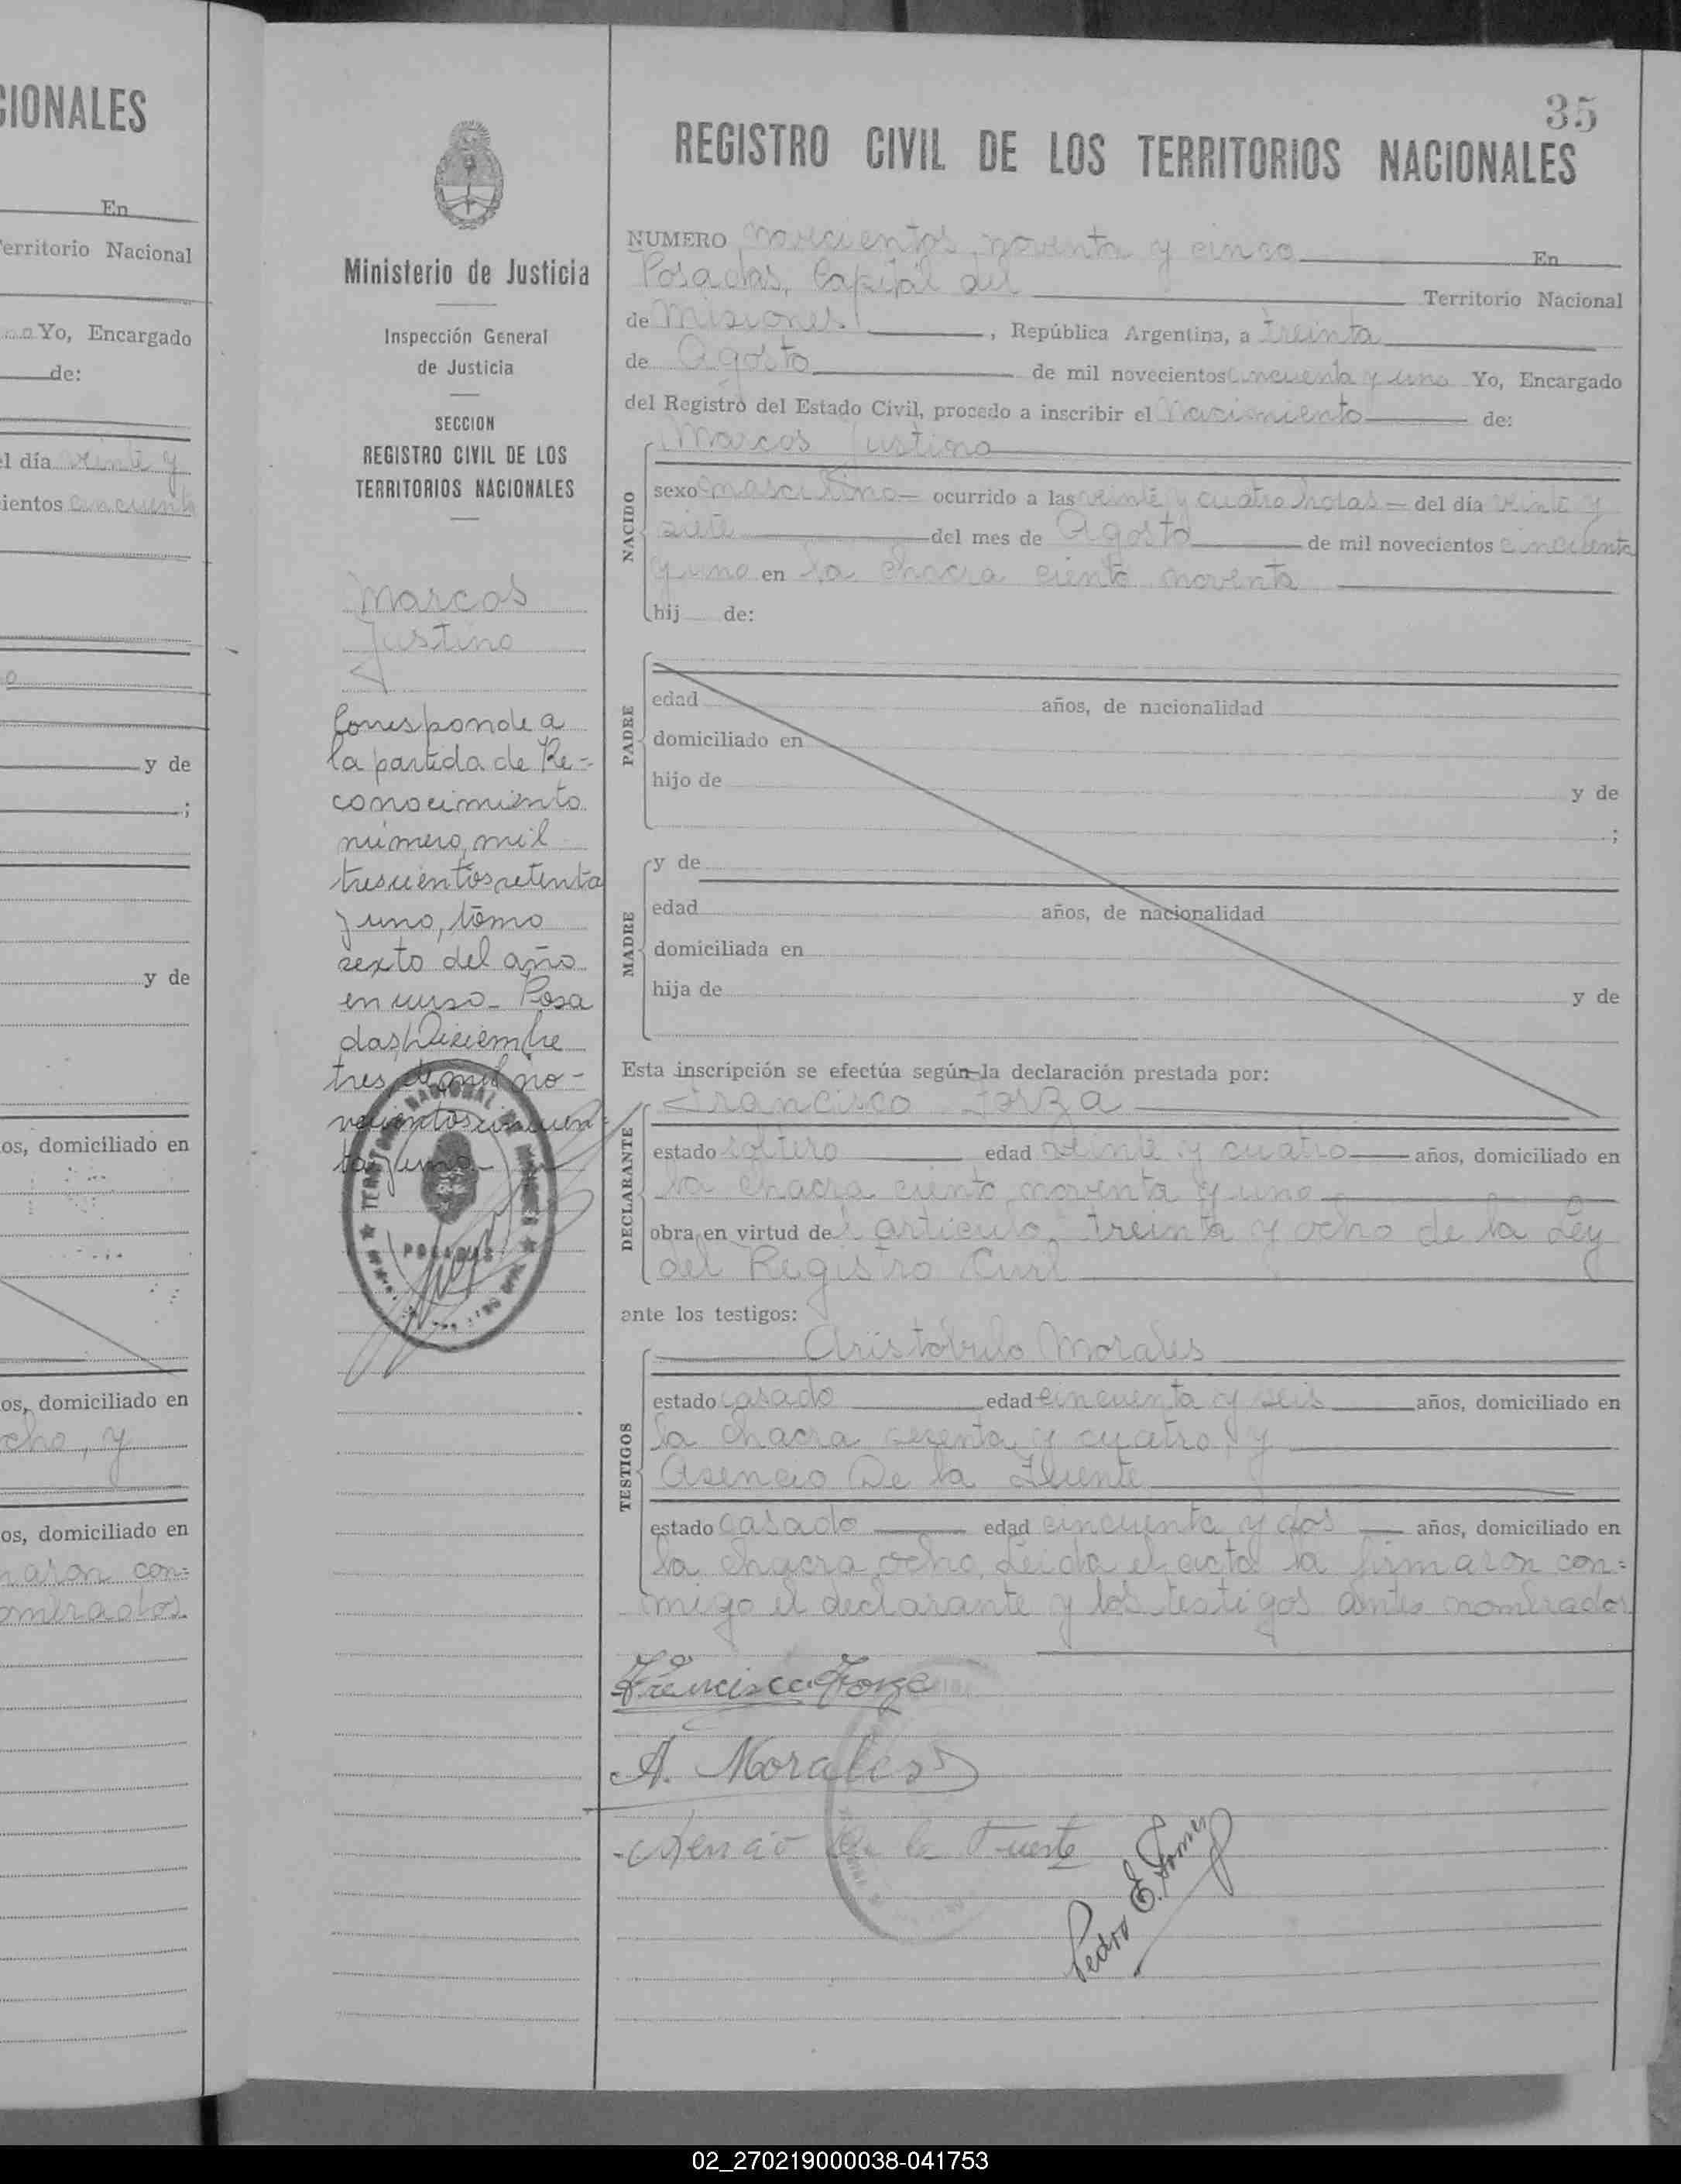 CIONALES
En
erritorio Nacional
Yo, Encargado
de:
el día veinte y
cientos cincuenta
y de
;
y de
os, domiciliado en
os, domiciliado en
ocho, y
os, domiciliado en
maron con=
ombrados
Ministerio de Justicia
Inspección General
de Justicia
SECCION
REGISTRO CIVIL DE LOS
TERRITORIOS NACIONALES
Marcos
Justino
Corresponde a
la partida de Re-
conocimiento
número, mil
trescientos setenta
y uno, tomo
sexto del año
en curso_ Posa
das, Diciembre
tres de mil no-
vecientos cincuen
ta y uno
POSADAS
35
REGISTRO CIVIL DE LOS TERRITORIOS NACIONALES
NUMERO novecientos noventa y cinco En
Posadas, Capital del Territorio Nacional
de Misiones, República Argentina, a treinta
de Agosto de mil novecientos cincuenta y uno Yo, Encargado
del Registro del Estado Civil, procedo a inscribir el Nacimiento de:
Marcos Justino
NACIDO
sexo masculino ocurrido a las veinte y cuatro horas del día veinte y
siete del mes de Agosto de mil novecientos cincuenta
y uno en la chacra ciento noventa
hij de:
PADRE
edad años, de nacionalidad
domiciliado en
hijo de y de
;
MADRE
y de
edad años, de nacionalidad
domiciliada en
hija de y de
Esta inscripción se efectúa según la declaración prestada por:
Francisco Forza
DECLARANTE
estado soltero edad veinte y cuatro años, domiciliado en
la chacra ciento noventa y uno
obra en virtud del articulo treinta y ocho de la Ley
del Registro Civil
ante los testigos:
Aristóbulo Morales
TESTIGOS
estado casado edad cincuenta y seis años, domiciliado en
la chacra sesenta y cuatro, y
Asencio De la Fuente
estado casado edad cincuenta y dos años, domiciliado en
la chacra ocho. Leida el acta la firmaron con=
migo el declarante y los testigos antes nombrados
Francisco Forza
A. Morales
Asencio De la Fuente
Pedro E.
02_270219000038-041753